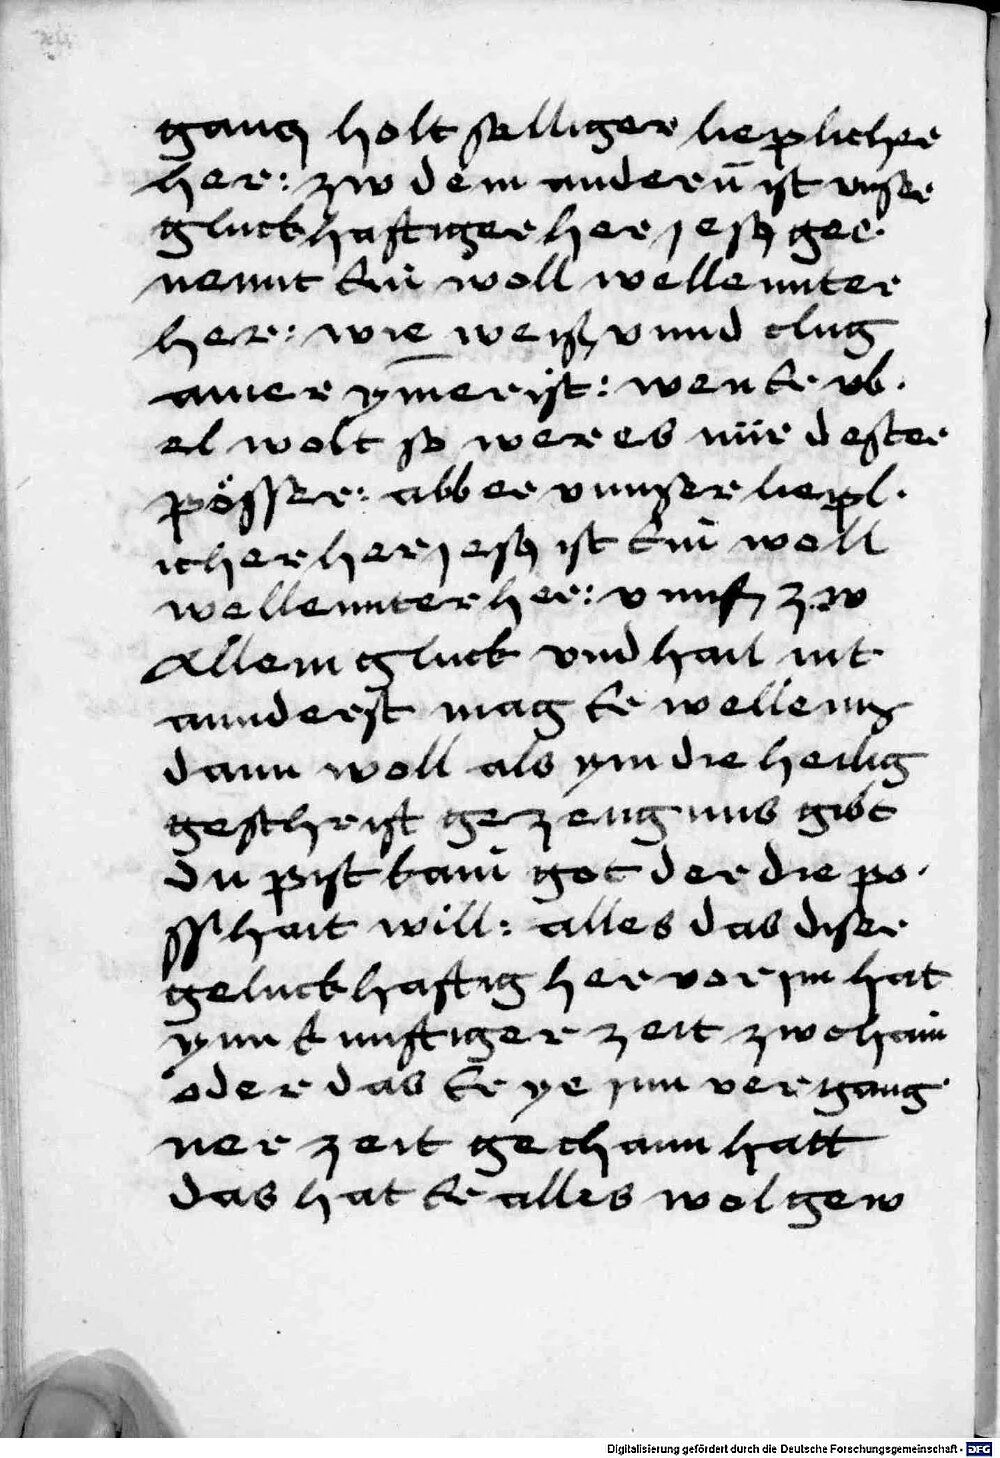 gancz holt selliger lieplicher
her: zw dem anderñ ist vnser
gluckhafftiger her jesus ge¬
nennt Ein woll wellennter
her: wie weiß vnnd clug
ainer ymer ist: wen Er vb¬
el wolt so wer es nür dester
pösser: abber vnnser liepl¬
icher her jesus ist Ein woll
wellennter her: vnns zw
Allem gluck vnd hail nit
annderst mag Er wellenn
dann woll als ym die heilig
geschrift gezeugnus gibt
du pist kain got der die po¬
sshait will: alles das diser
geluckhafftig her vor im hat
ynn kunftiger zeit zwo hain
oder das Er ye inn vergang¬
ner zeit gethann hatt
das hat Er alles wol gew
Digitalisierung gefördert durch die Deutsche Forschungsgemeinschaft - DFG